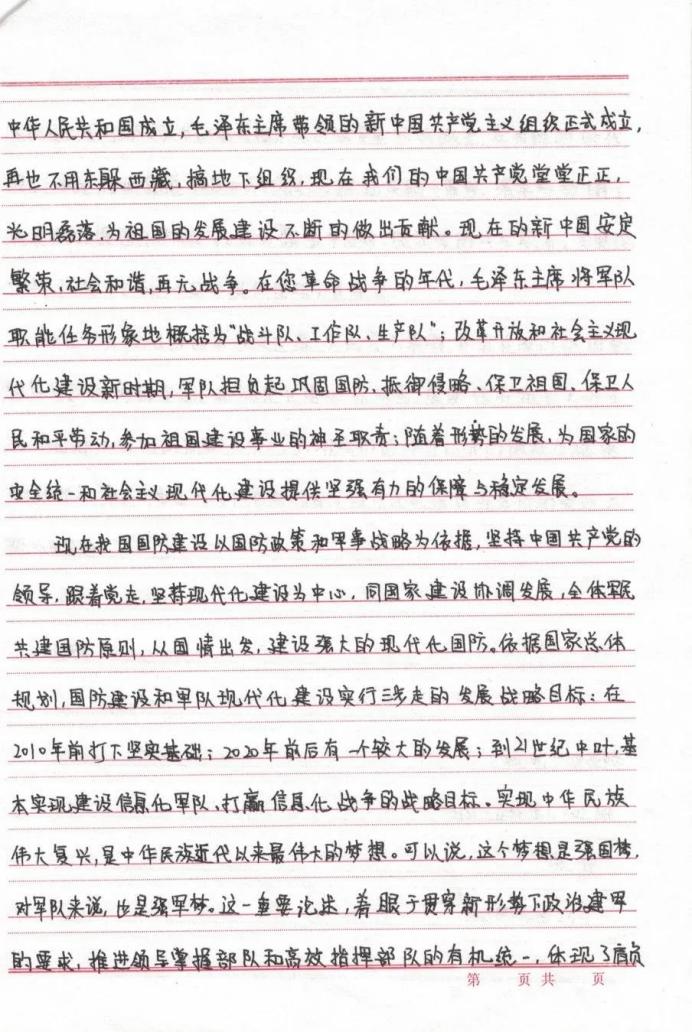 中华人民共和国成立，毛泽东主席带领的新中国共产党主义组织正式成立，
再也不用东躲西藏，搞地下组织，现在我们的中国共产党堂堂正正，
光明磊落，为祖国的发展建设不断的做出贡献。现在的新中国安定
繁荣，社会和谐，再无战争。在您革命战争的年代，毛泽东主席将军队
职能任务形象地概括为“战斗队、工作队、生产队”；改革开放和社会主义现
代化建设新时期，军队担负起巩固国防、抵御侵略、保卫祖国、保卫人
民和平劳动，参加祖国建设事业的神圣职责；随着形势的发展，为国家的
安全统一和社会主义现代化建设提供坚强有力的保障与稳定发展。
现在我国国防建设以国防政策和军事战略为依据，坚持中国共产党的
领导，跟着党走，坚持现代化建设为中心，同国家建设协调发展，全体军民
共建国防原则，从国情出发，建设强大的现代化国防。依据国家总体
规划，国防建设和军队现代化建设实行三步走的发展战略目标：在
2010年前打下坚实基础；2020年前后有一个较大的发展；到21世纪中叶，基
本实现建设信息化军队、打赢信息化战争的战略目标。实现中华民族
伟大复兴，是中华民族近代以来最伟大的梦想。可以说，这个梦想是强国梦，
对军队来说，也是强军梦。这一重要论述，着眼于贯穿新形势下政治建军
的要求，推进领导掌握部队和高效指挥部队的有机统一，体现了肩负
第 页 共 页